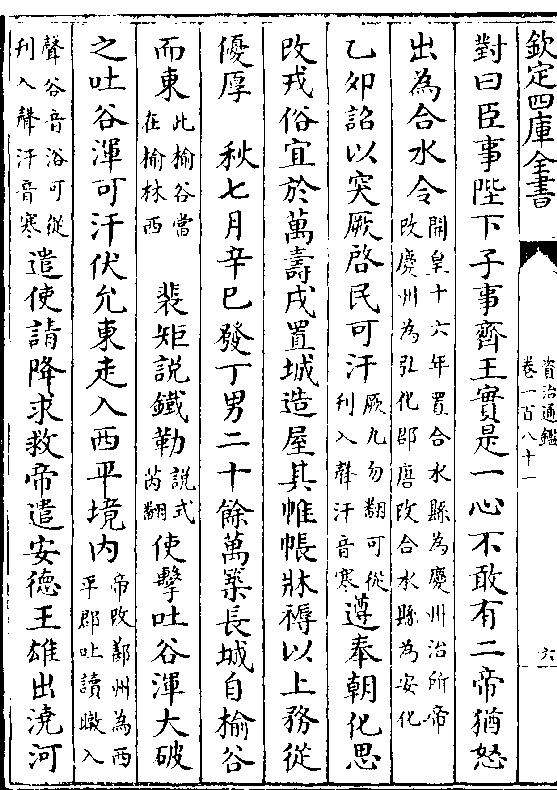 欽定四庫全書
資治通鑑
卷一百八十一
六
對曰臣事陛下子事齊王實是一心不敢有二帝猶怒
出為合水令開皇十六年置合水縣為慶州治所帝改慶州為弘化郡唐改合水縣為安化
乙卯詔以突厥啓民可汗厥九勿翻可從刋入聲汗音寒遵奉朝化思
改戎俗宜於萬壽戍置城造屋其帷帳牀褥以上務從
優厚　秋七月辛巳發丁男二十餘萬築長城自榆谷
而東此榆谷當在榆林西　裴矩説鐵勒説式芮翻使擊吐谷渾大破
之吐谷渾可汗伏允東走入西平境内帝改鄯州為西平郡吐讀暾入
聲谷音浴可從刋入聲汗音寒遣使請降求救帝遣安德王雄出澆河